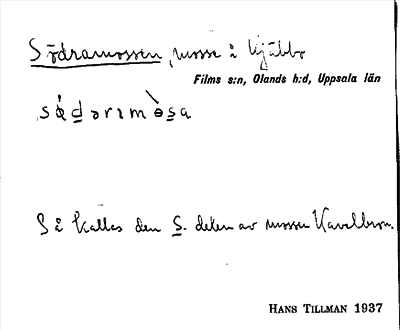 Södramossen, mosse å
Films s:n, Olands h:d, Uppsala län
Så kallas den S. delen av mossen
HANS TILLMAN 1937